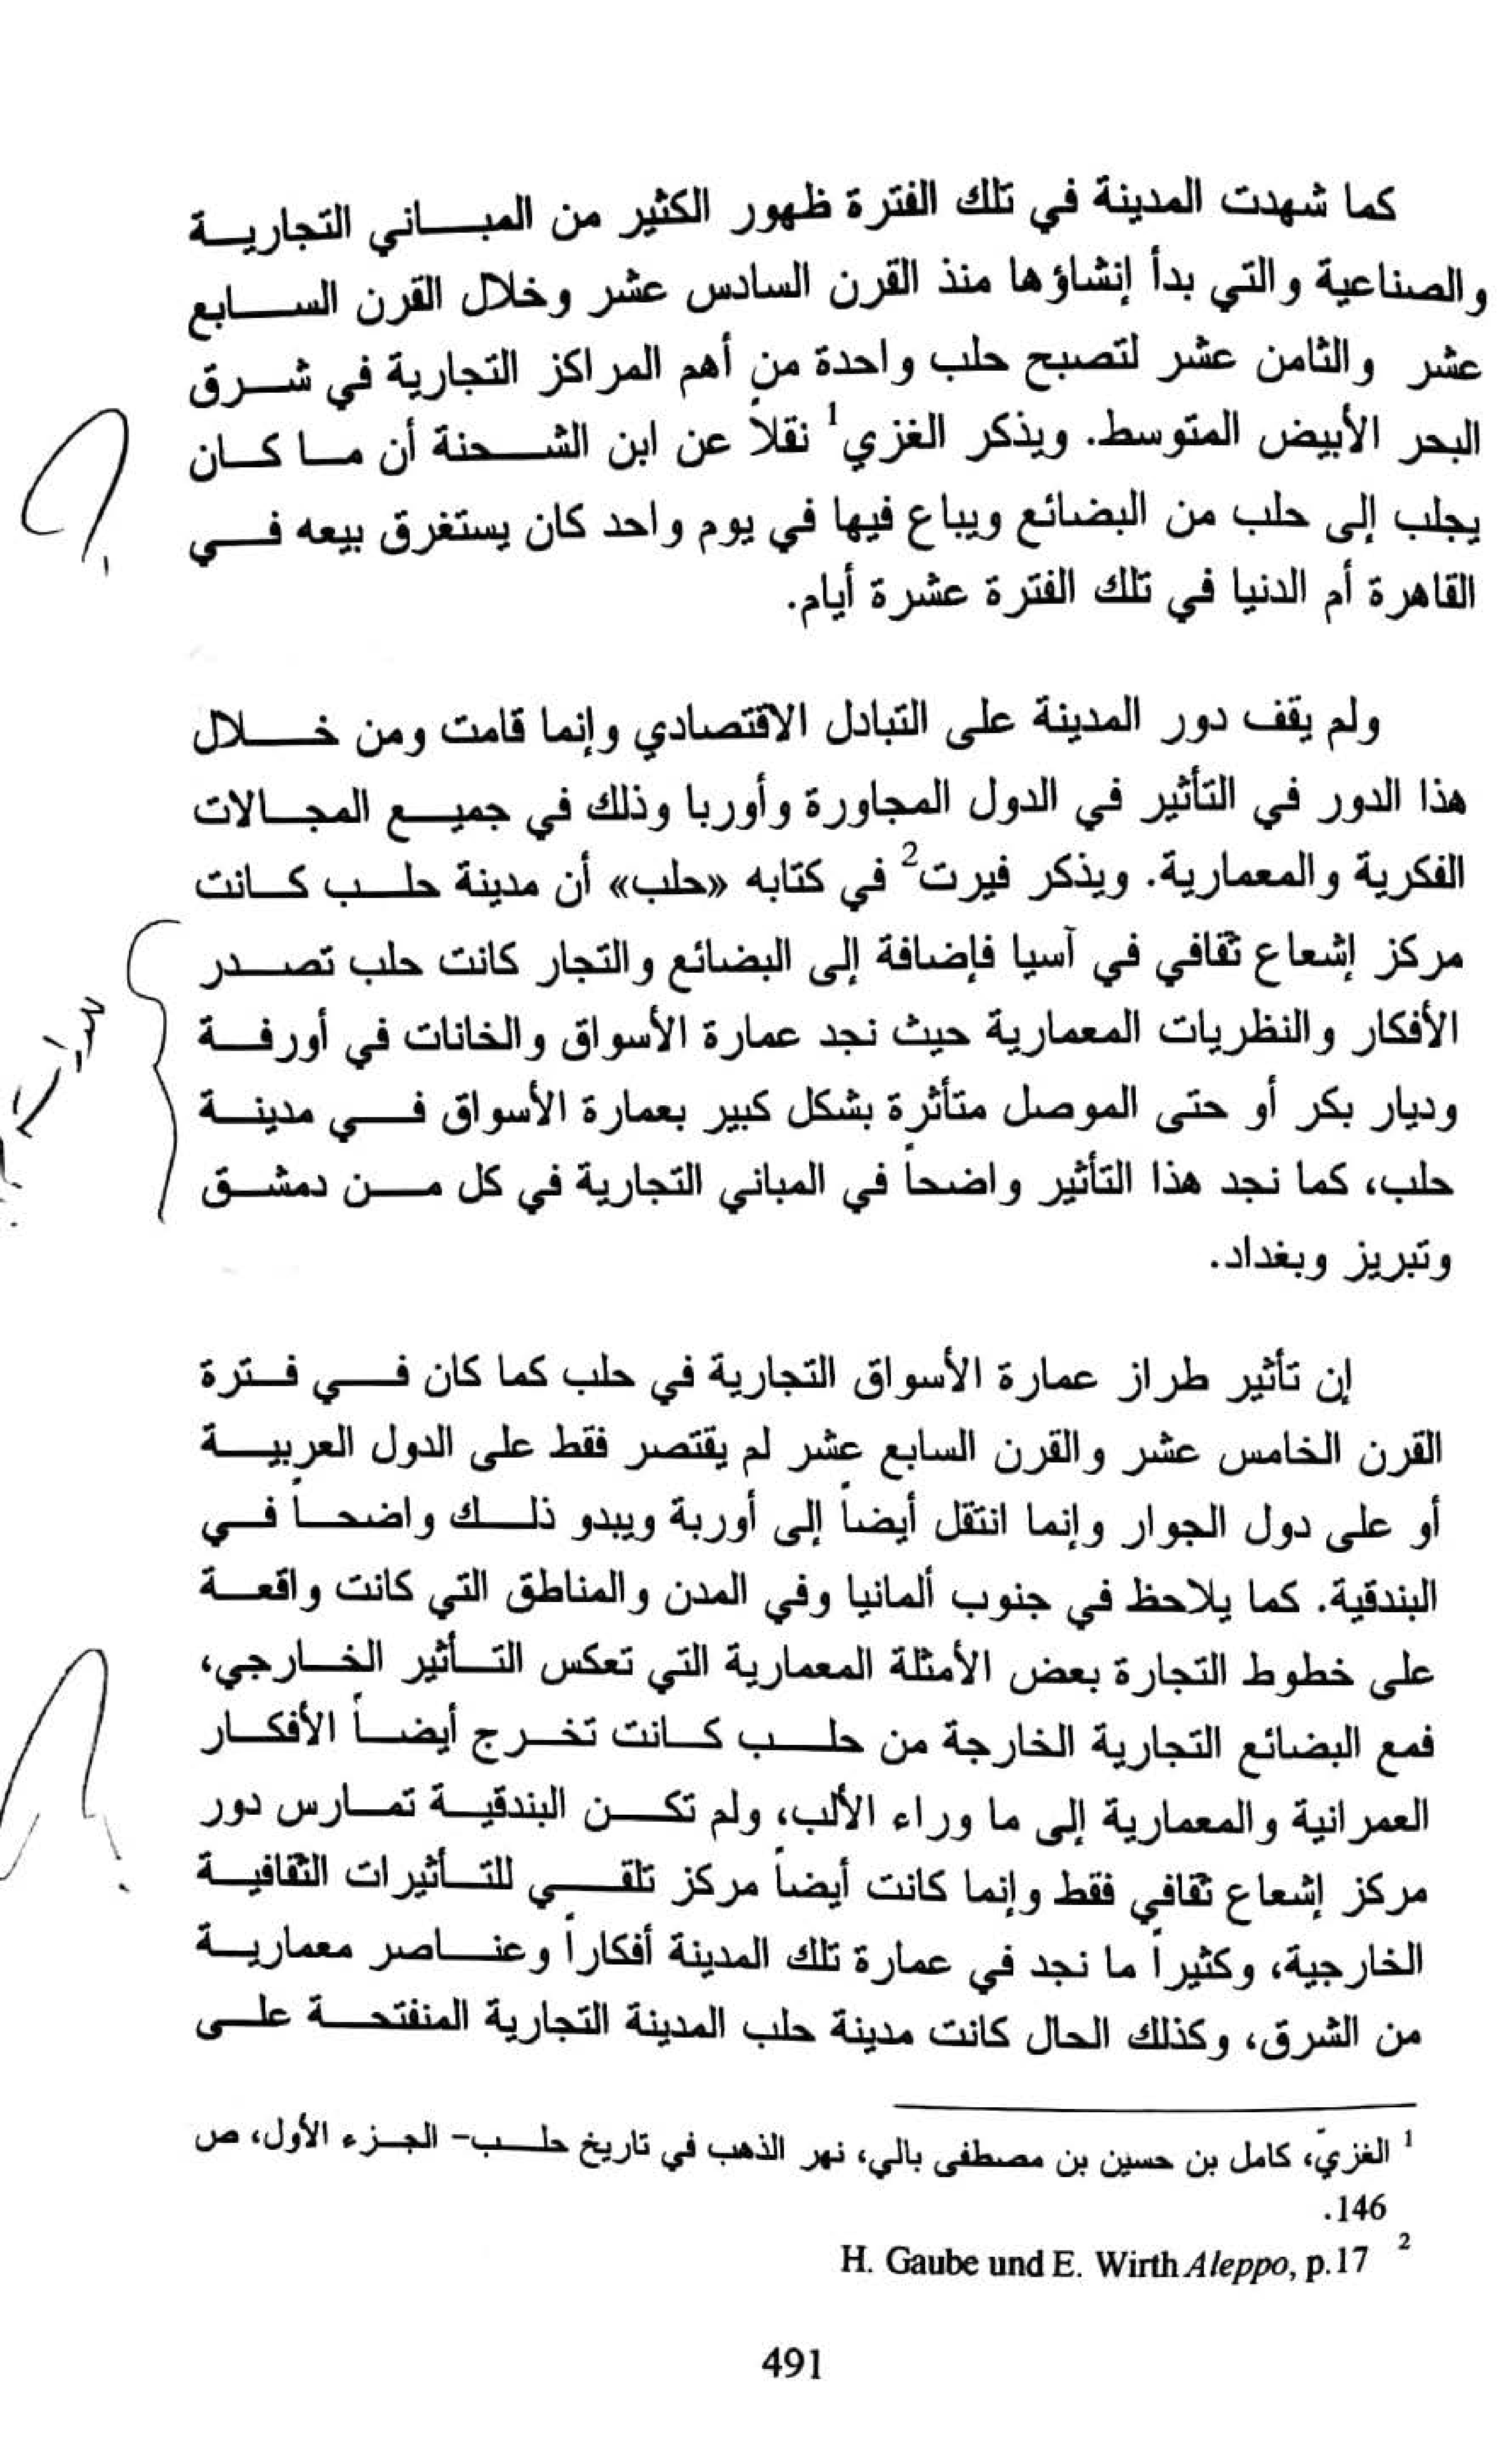 كما شهدت المدينة في تلك الفترة ظهور الكثير من المباني التجارية
والصناعية والتي بدأ إنشاؤها منذ القرن السادس عشر وخلال القرن السابع
عشر والثامن عشر لتصبح حلب واحدة من أهم المراكز التجارية في شرق
البحر الأبيض المتوسط. ويذكر الغزي1 نقلاً عن ابن الشحنة أن ما كان
يجلب إلى حلب من البضائع ويباع فيها في يوم واحد كان يستغرق بيعه في
القاهرة أم الدنيا في تلك الفترة عشرة أيام.
ولم يقف دور المدينة على التبادل الاقتصادي وإنما قامت ومن خلال
هذا الدور في التأثير في الدول المجاورة وأوربا وذلك في جميع المجالات
الفكرية والمعمارية. ويذكر فيرت2 في كتابه «حلب» أن مدينة حلب كانت
مركز إشعاع ثقافي في آسيا فإضافة إلى البضائع والتجار كانت حلب تصدر
الأفكار والنظريات المعمارية حيث نجد عمارة الأسواق والخانات في أورفة
وديار بكر أو حتى الموصل متأثرة بشكل كبير بعمارة الأسواق في مدينة
حلب، كما نجد هذا التأثير واضحاً في المباني التجارية في كل من دمشق
وتبريز وبغداد.
إن تأثير طراز عمارة الأسواق التجارية في حلب كما كان في فترة
القرن الخامس عشر والقرن السابع عشر لم يقتصر فقط على الدول العربية
أو على دول الجوار وإنما انتقل أيضاً إلى أوربة ويبدو ذلك واضحاً في
البندقية. كما يلاحظ في جنوب ألمانيا وفي المدن والمناطق التي كانت واقعة
على خطوط التجارة بعض الأمثلة المعمارية التي تعكس التأثير الخارجي،
فمع البضائع التجارية الخارجة من حلب كانت تخرج أيضاً الأفكار
العمرانية والمعمارية إلى ما وراء الألب، ولم تكن البندقية تمارس دور
مركز إشعاع ثقافي فقط وإنما كانت أيضاً مركز تلقي للتأثيرات الثقافية
الخارجية، وكثيراً ما نجد في عمارة تلك المدينة أفكاراً وعناصر معمارية
من الشرق، وكذلك الحال كانت مدينة حلب المدينة التجارية المنفتحة على
1 الغزيّ، كامل بن حسين بن مصطفى بالي، نهر الذهب في تاريخ حلب- الجزء الأول، ص
146.
2 H. Gaube und E. Wirth Aleppo, p.17
491